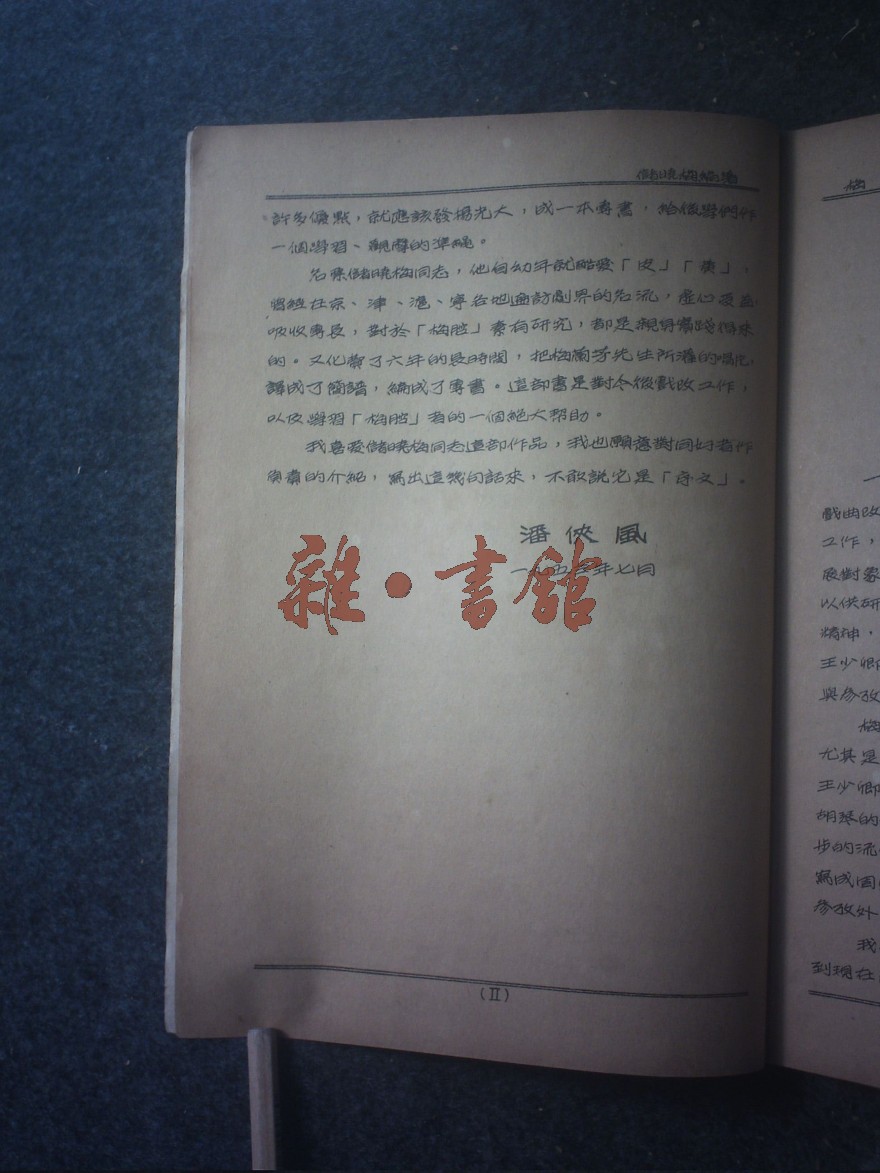 儲曉梅編譜
許多優點，就應該發揚光大，成一本專書，給後學們作
一個學習、觀摩的準繩。
名票儲曉梅同志，他自幼年就酷愛「皮」「黃」、
曾經在京、津、滬、寧各地遍訪劇界的名流，虛心
吸收專長，對於「梅腔」素有研究，都是親身實踐得來
的。又化費了六年的長時間，把梅蘭芳先生所灌的唱片，
譯成了簡譜，編成了專書。這部書是對今後戲改工作，
以及學習「梅腔」者的一個絕大幫助。
我喜愛儲曉梅同志這部作品，我也願意對同好者作
負責的介紹，寫出這幾句話來，不敢說它是「序文」。
潘俠風
一九五五年七月
雜·書館
(Ⅱ)
梅
一
戲曲改
工作，
展對象
以供研
精神，
王少卿
與參攷
梅
尤其是
王少卿
胡琴的
步的流
寫成固
參攷外
我
到現在